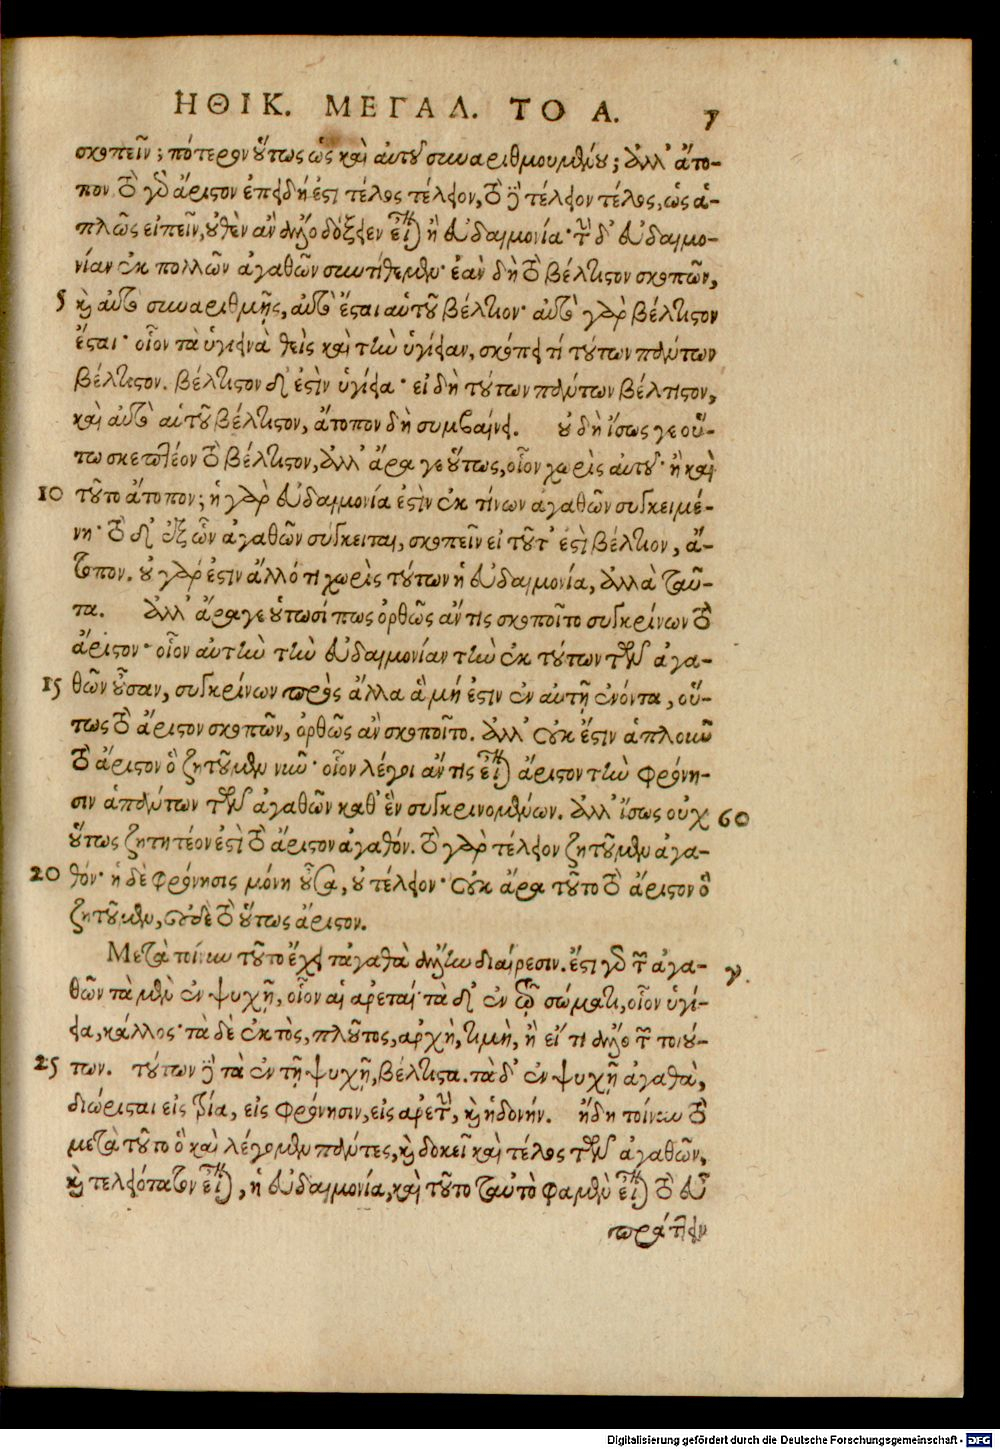 ΗΘΙΚ. ΜΕΓΑΛ. ΤΟ Α. 7
σκοπεῖν; πότερον οὕτως ὡς καὶ αὐτοῦ συναριθμουμένου; ἀλλ' ἄτο-
πον. τὸ γὰρ ἄριστον ἐπειδή ἐστι τέλος τέλειον, τὸ δὲ τέλειον τέλος, ὡς ἁ-
πλῶς εἰπεῖν, οὐθὲν ἂν ἄλλο δόξειεν εἶναι ἢ εὐδαιμονία· τὴν δ' εὐδαιμο-
νίαν ἐκ πολλῶν ἀγαθῶν συντίθεμεν· ἐὰν δὴ τὸ βέλτιστον σκοπῶν,
5 καὶ αὐτὸ συναριθμῇς, αὐτὸ ἔσται αὑτοῦ βέλτιον· αὐτὸ γὰρ βέλτιστον
ἔσται· οἷον τὰ ὑγιεινὰ θεὶς καὶ τὴν ὑγίειαν, σκόπει τί τούτων πάντων
βέλτιστον. βέλτιστον δέ ἐστιν ὑγίεια· εἰ δὴ τούτων πάντων βέλτιστον,
καὶ αὐτὸ αὑτοῦ βέλτιστον, ἄτοπον δὴ συμβαίνει. οὐ δὴ ἴσως γε οὕ-
τω σκεπτέον τὸ βέλτιστον, ἀλλ' ἆρα γε οὕτως, οἷον χωρὶς αὐτοῦ· ἢ καὶ
10 τοῦτο ἄτοπον; ἡ γὰρ εὐδαιμονία ἐστὶν ἐκ τίνων ἀγαθῶν συγκειμέ-
νη· τὸ δὲ ἐξ ὧν ἀγαθῶν σύγκειται, σκοπεῖν εἰ τοῦτ' ἐστὶ βέλτιον, ἄ-
τοπον. οὐ γάρ ἐστιν ἄλλό τι χωρὶς τούτων ἡ εὐδαιμονία, ἀλλὰ ταῦ-
τα. ἀλλ' ἆρα γε οὑτωσί πως ὀρθῶς ἄν τις σκοποῖτο συγκρίνων τὸ
ἄριστον· οἷον αὐτὴν τὴν εὐδαιμονίαν τὴν ἐκ τούτων τῶν ἀγα-
15 θῶν οὖσαν, συγκρίνων πρὸς ἄλλα ἃ μή ἐστιν ἐν αὐτῇ ἐνόντα, οὕ-
τως τὸ ἄριστον σκοπῶν, ὀρθῶς ἂν σκοποῖτο. ἀλλ' οὐκ ἔστιν ἁπλοικῶ
τὸ ἄριστον ὃ ζητοῦμεν νῦν· οἷον λέγοι ἄν τις εἶναι ἄριστον τὴν φρόνη-
σιν ἁπάντων τῶν ἀγαθῶν καθ' ἓν συγκρινομένων. ἀλλ' ἴσως οὐχ 60
οὕτως ζητητέον ἐστὶ τὸ ἄριστον ἀγαθόν. τὸ γὰρ τέλειον ζητοῦμεν ἀγα-
20 θόν· ἡ δὲ φρόνησις μόνη οὖσα, οὐ τέλειον· οὐκ ἄρα τοῦτο τὸ ἄριστον ὃ
ζητοῦμεν, οὐδὲ τὸ οὕτως ἄριστον.
Μετὰ τοίνυν τοῦτο ἔχει τἀγαθὰ ἄλλην διαίρεσιν. ἔστι γὰρ τῶν ἀγα- γ.
θῶν τὰ μὲν ἐν ψυχῇ, οἷον αἱ ἀρεταί· τὰ δὲ ἐν τῷ σώματι, οἷον ὑγί-
εια, κάλλος· τὰ δὲ ἐκτὸς, πλοῦτος, ἀρχὴ, τιμὴ, ἢ εἴ τι ἄλλο τῶν τοιού-
25 των. τούτων δὲ τὰ ἐν τῇ ψυχῇ, βέλτιστα. τὰ δ' ἐν ψυχῇ ἀγαθὰ,
διώρισται εἰς τρία, εἰς φρόνησιν, εἰς ἀρετὴν, καὶ ἡδονήν. ἤδη τοίνυν τὸ
μετὰ τοῦτο ὃ καὶ λέγομεν πάντες, καὶ δοκεῖ καὶ τέλος τῶν ἀγαθῶν,
καὶ τελειότατον εἶναι, ἡ εὐδαιμονία, καὶ τοῦτο ταὐτὸ φαμὲν εἶναι τὸ εὖ
πράττειν
Digitalisierung gefördert durch die Deutsche Forschungsgemeinschaft - DFG